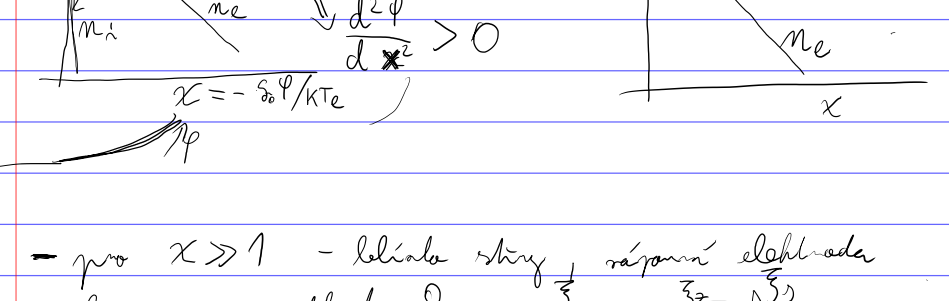 n_i n_e ⇓ d²φ/dx² > 0 n_e
χ = - q₀φ/kTe χ
φ
- pro χ ≫ 1 - blízko stěny, záporná elektroda